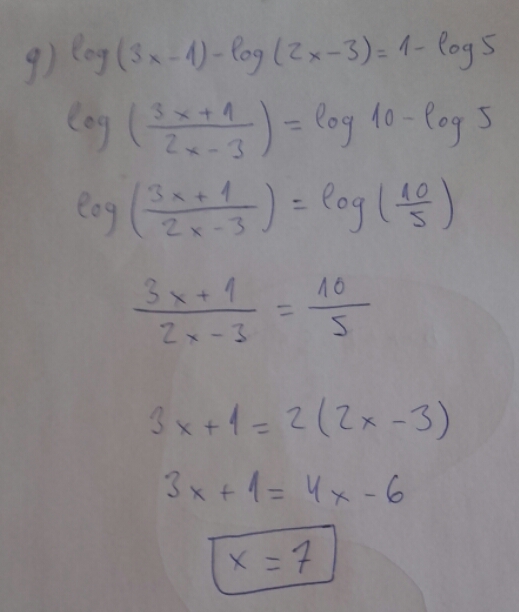 g) log(3x-1)-log(2x-3)=1-log5
log(\frac{3x+1}{2x-3})=log10-log5
log(\frac{3x+1}{2x-3})=log(\frac{10}{5})
\frac{3x+1}{2x-3}=\frac{10}{5}
3x+1=2(2x-3)
3x+1=4x-6
x=7